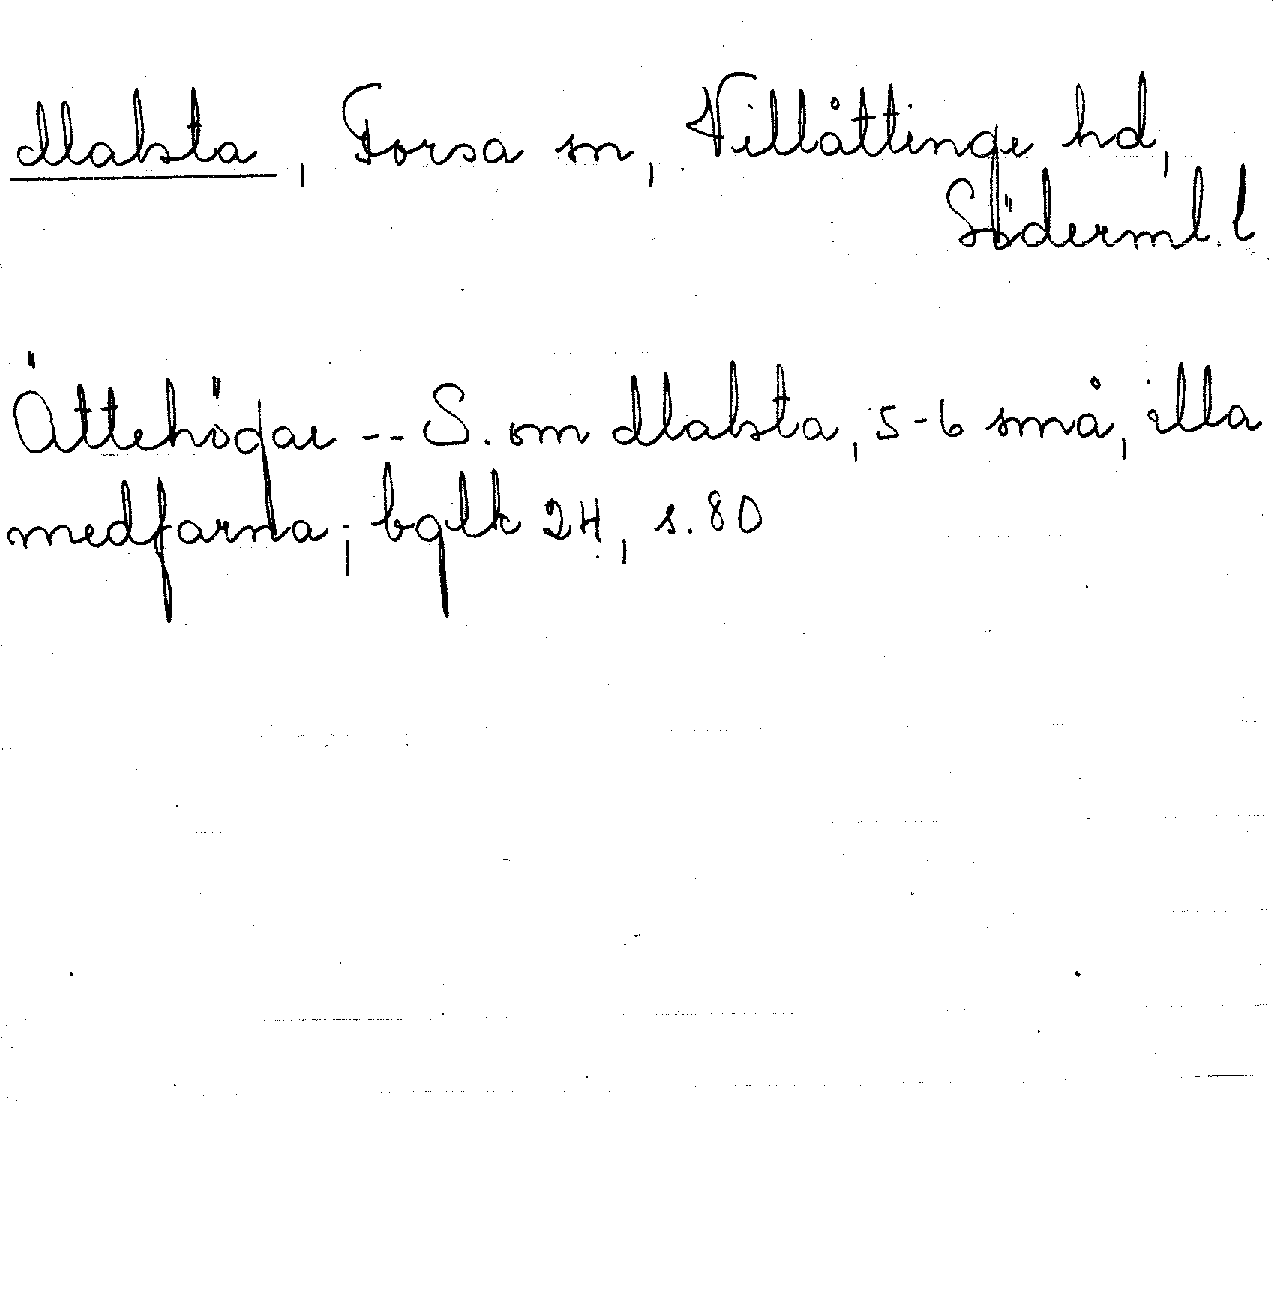 Malsta, Forsa sn, Villåttinge hd,
Söderml. l
Ättehögar -- S. om Malsta, 5-6 små, illa
medfarna; bglk 24, s. 80